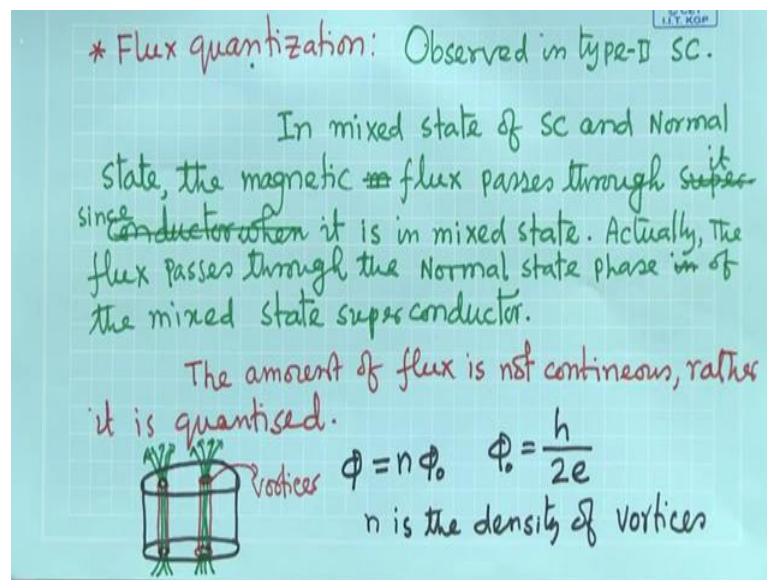 I.I.T. KGP
* Flux quantization: Observed in type-II SC.
In mixed state of SC and Normal
state, the magnetic flux passes through it
since it is in mixed state. Actually, The
flux passes through the Normal state phase of
the mixed state superconductor.
The amount of flux is not contineous, rather
it is quantised.
vortices
ϕ = nϕ₀ ϕ₀ = h/2e
n is the density of vortices